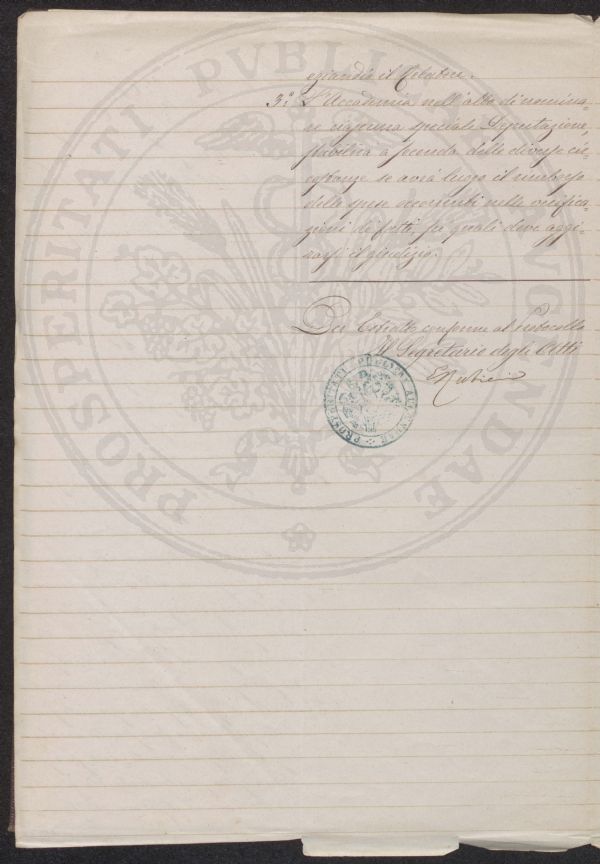 eziandio il Relatore.
3.º L'Accademia nell'atto di nomina-
re ciascuna speciale Deputazione,
stabilirà a seconda delle diverse cir-
costanze se avrà luogo il rimborso
delle spese occorrenti nelle verifica-
zioni di fatti, su quali deve aggi-
rarsi il giudizio.
Per Estratto conforme al Protocollo
Il Segretario degli Atti
PROSPERITATI PUBLICAE AUGENDAE
PROSPERITATI PVBLICAE AVGENDAE